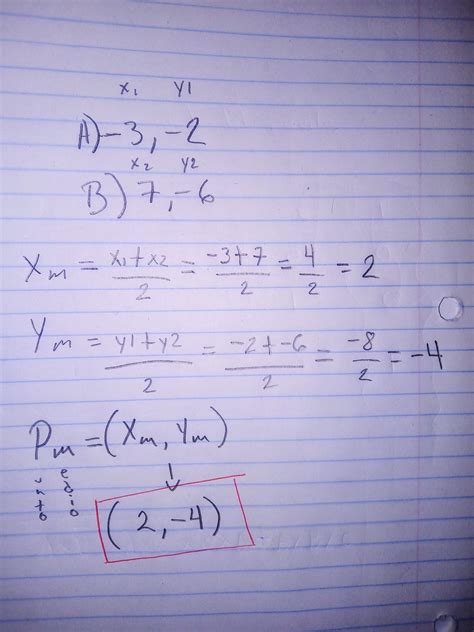 x1 y1
A) -3, -2
x2 y2
B) 7, -6
Xm = x1+x2/2 = -3+7/2 = 4/2 = 2
Ym = y1+y2/2 = -2+-6/2 = -8/2 = -4
Pm = (Xm, Ym)
↓
(2, -4)